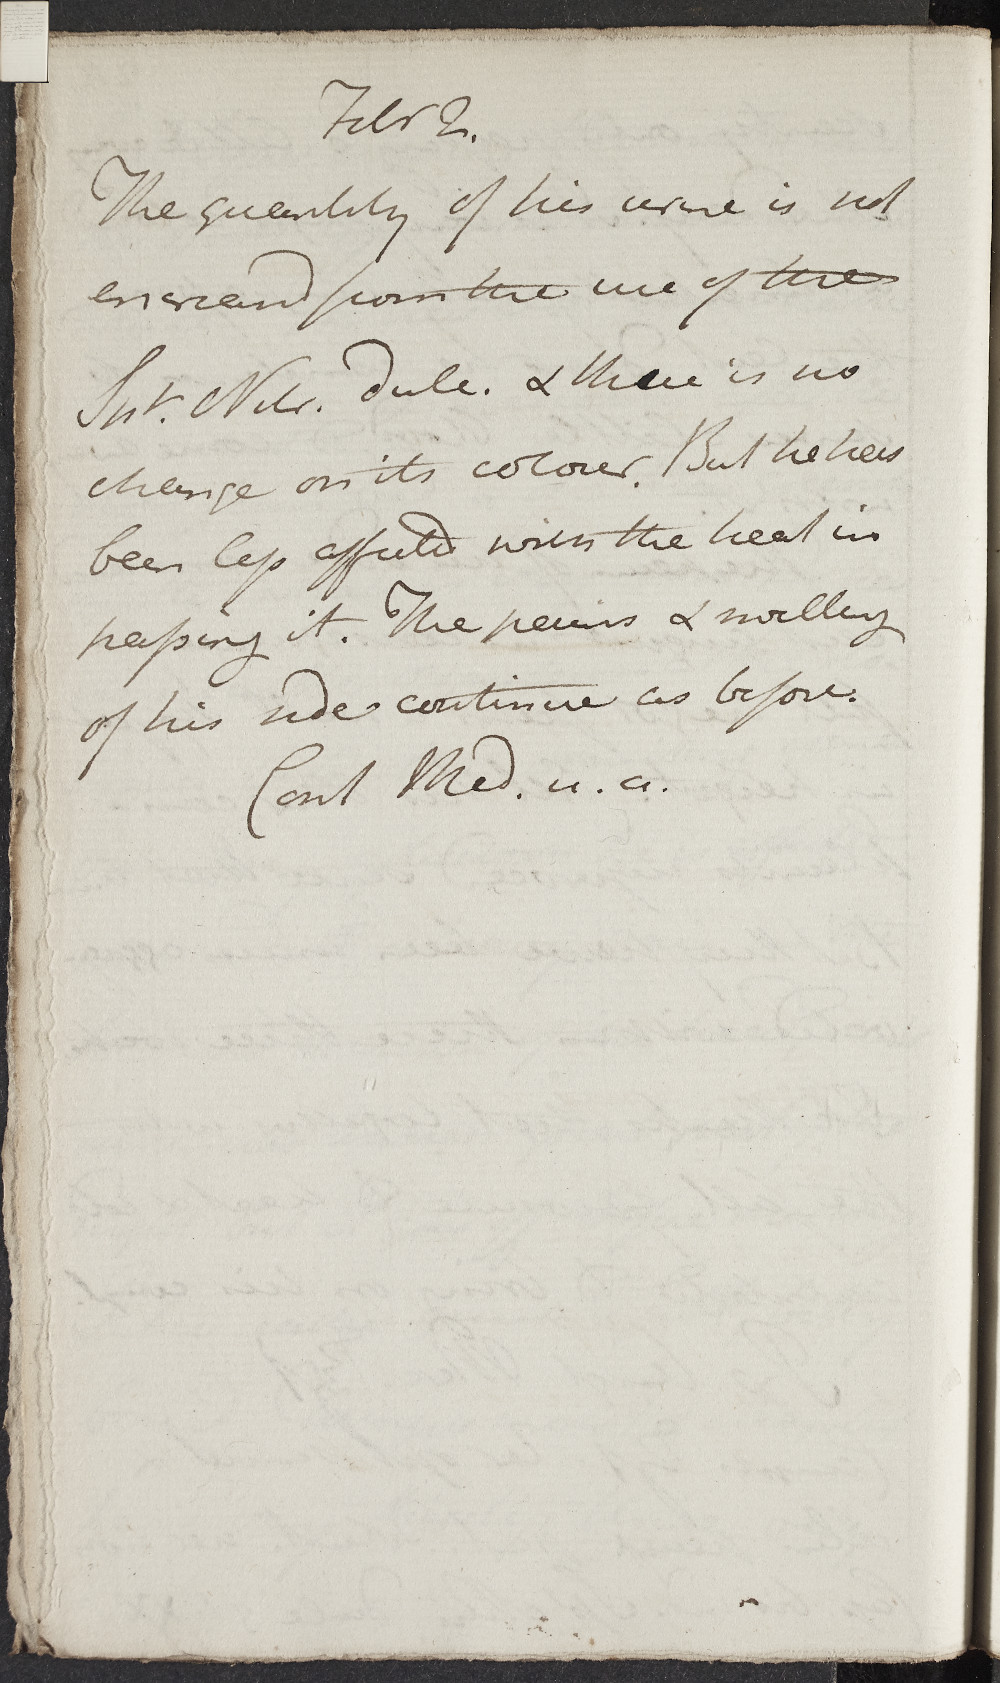 Febr 2.
The quantity of his urine is not
encreased from the use of the
Spt. Nitr. dulc. & there is no
change on its colour. But he has
been less affected with the heat in
passing it. The pains & swelling
of his side continue as before.
Cont Med. u. a.